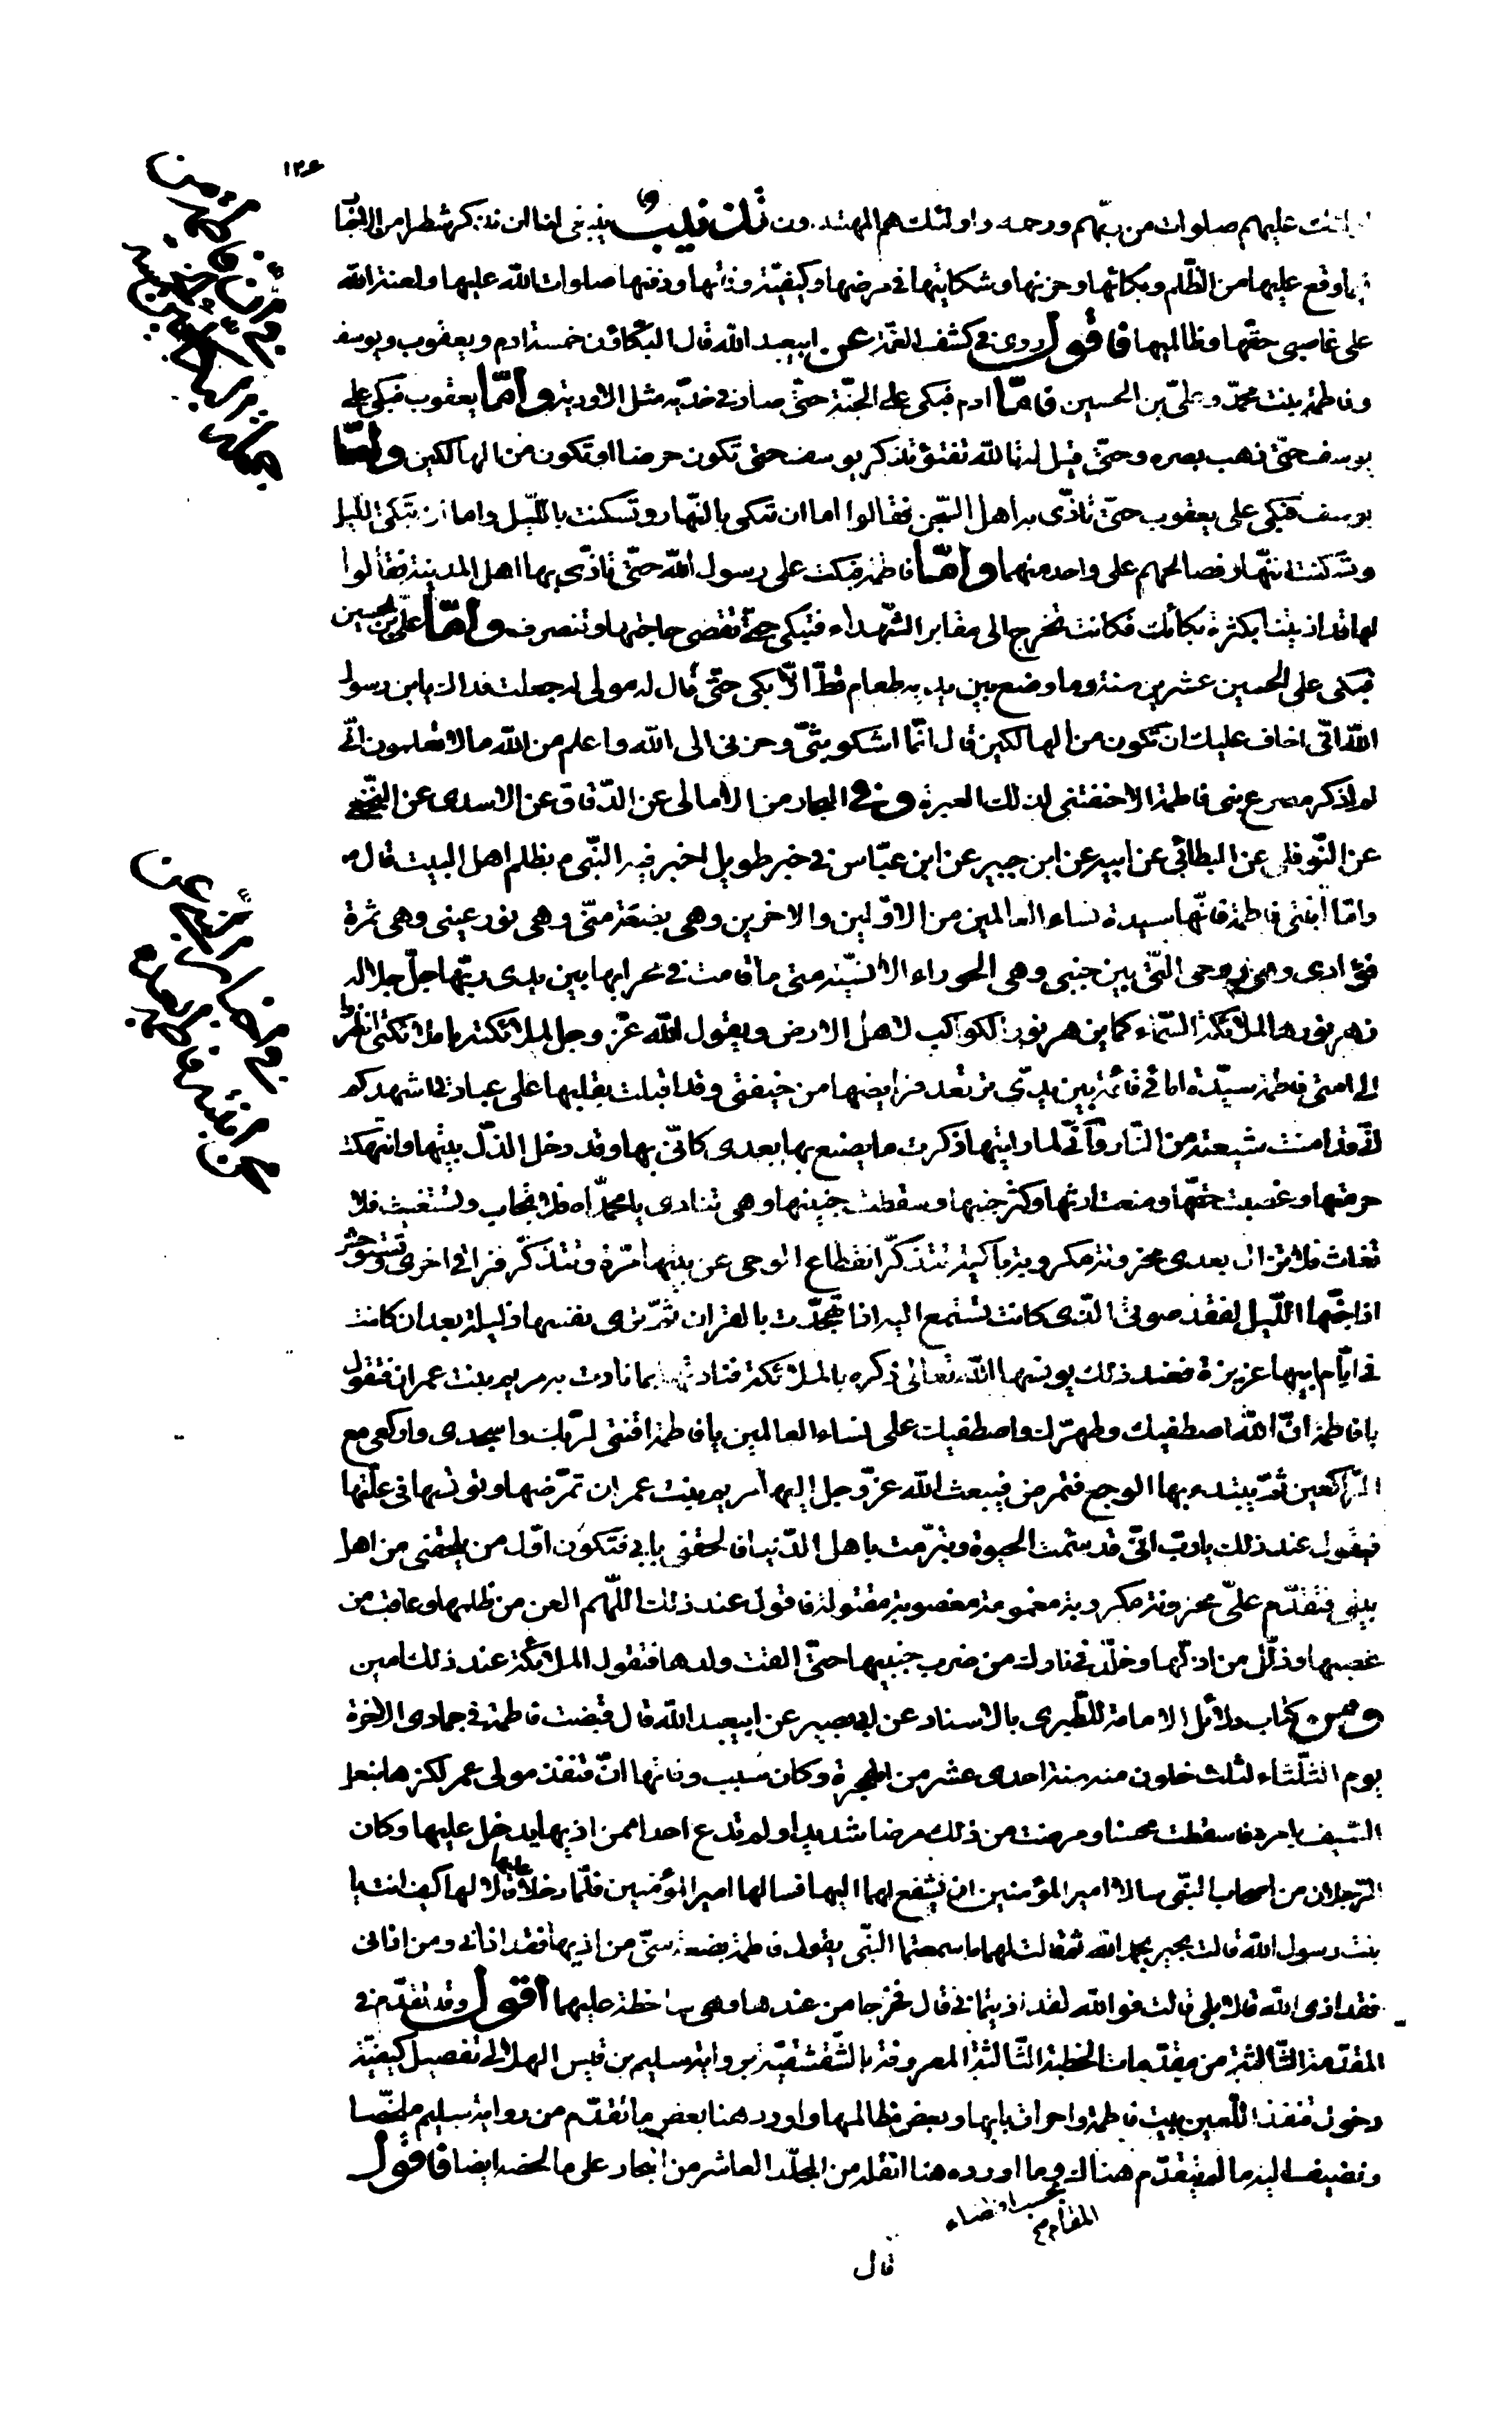 ١٢٦
اولئك عليهم صلوات من ربّهم ورحمة واولئك هم المهتدون تذنيب ينبغي لنا ان نذكر شطرا من
ما وقع عليها من الظلم وبكائها وحزنها وشكايتها في مرضها وكيفيّة وفاتها ودفنها صلوات الله عليها ولعنة الله
على غاصبي حقّها وظالميها فاقول روى في كشف الغمّة عن ابيعبد الله قال البكّاؤن خمسة ادم ويعقوب ويوسف
وفاطمة بنت محمّد وعليّ بن الحسين فامّا ادم فبكى على الجنّة حتّى صار في خدّيه مثل الاودية وامّا يعقوب فبكى على
يوسف حتّى ذهب بصره وحتّى قيل له تالله تفتؤ تذكر يوسف حتى تكون حرضا او تكون من الهالكين وامّا
يوسف فبكى على يعقوب حتّى تاذّى به اهل السّجن فقالوا اما ان تبكي بالنّهار وتسكت باللّيل واما ان تبكى اللّيل
وتسكت النّهار فصالحهم على واحد منهما وامّا فاطمة فبكت على رسول الله حتّى تاذّى بها اهل المدينة فقالوا
لها قد اذيتنا بكثرة بكائك فكانت تخرج الى مقابر الشّهداء فتبكى حتّى تقضى حاجتها وتنصرف وامّا عليّ بن الحسين
فبكى على الحسين عشرين سنة وما وضع بين يديه طعام قطّ الّا بكى حتّى قال له مولى له جعلت فداك يابن رسول
الله انّى اخاف عليك ان تكون من الهالكين قال انّما اشكو بثّى وحزنى الى الله واعلم من الله ما لا تعلمون انّى
لم اذكر مصرع بنى فاطمة الا خنقتنى لذلك العبرة وفي البحار من الامالى عن الدّقاق عن الاسدى عن النّخعى
عن النّوفلى عن البطائنى عن ابيه عن ابن جبير عن ابن عبّاس في خبر طويل اخبر فيه النّبى ص بظلم اهل البيت قال ص
وامّا ابنتى فاطمة فانّها سيدة نساء العالمين من الاوّلين والاخرين وهى بضعة منّى وهى نور عينى وهى ثمرة
فؤادى وهى روحى الّتى بين جنبى وهى الحوراء الانسيّة متى ما قامت في محرابها بين يدى ربّها جلّ جلاله
زهر نورها لملائكة السّماء كما يزهر نور الكواكب لاهل الارض ويقول الله عزّ وجل لملائكته يا ملائكتى انظروا
الى امتى فاطمة سيّدة امائى قائمة بين يديّ ترتعد فرايضها من خيفتى وقد اقبلت بقلبها على عبادتى اشهدكم
انّى قد امنت شيعتها من النّار وانّى لما رايتها ذكرت ما يصنع بها بعدى كانّى بها وقد دخل الذلّ بيتها وانتهكت
حرمتها وغصبت حقّها ومنعت ارثها وكسر جنبها وسقطت جنينها وهى تنادى يا محمّداه فلا تجاب وتستغيث فلا
تغاث فلا تزال بعدى محزونة مكروبة باكية تتذكّر انقطاع الوحى عن بيتها مرّة وتتذكّر فراقى اخرى وتستوحش
اذا جنّها اللّيل لفقد صوتى الذى كانت تستمع اليه اذا تهجّدت بالقران ثمّ ترى نفسها ذليلة بعد ان كانت
في ايّام ابيها عزيزة فعند ذلك يونسها الله تعالى ذكره بالملائكة فنادتها بما نادت به مريم بنت عمران فتقول
يا فاطمة انّ الله اصطفيك وطهّرك واصطفيك على نساء العالمين يا فاطمة اقنتى لربّك واسجدى واركعى مع
الرّاكعين ثمّ يبتدء بها الوجع فتمرض فيبعث الله عزّ وجل اليها مريم بنت عمران تمرّضها وتونسها في علّتها
فيقول عند ذلك يا ربّ انّى قد سئمت الحيوة وتبرّمت باهل الدّنيا فالحقنى بابى فتكون اوّل من يلحقنى من اهل
بيتى فتقدّم علىّ محزونة مكروبة مغمومة مغصوبة مقتولة فاقول عند ذلك اللّهم العن من ظلمها وعاقب من
غصبها وذلّل من اذلّها وخلّد في نارك من ضرب جنبيها حتّى القت ولدها فتقول الملائكة عند ذلك امين
ومن كتاب دلائل الامامة للطّبرى بالاسناد عن ابى بصير عن ابيعبد الله قال قبضت فاطمة في جمادى الاخرة
يوم الثّلثاء لثلث خلون منه سنة احدى عشر من الهجرة وكان سبب وفاتها انّ قنفذ مولى عمر لكزها بنعل
السّيف بامره فاسقطت محسنا ومرضت من ذلك مرضا شديدا ولم تدع احدا ممن اذيها يدخل عليها وكان
الرّجلان من اصحاب النّبى سالا امير المؤمنين ان يشفع لهما اليها فسالها امير المؤمنين فلمّا دخلا عليها قالا لها كيف انت يا
بنت رسول الله قالت بخير بحمد الله ثم قالت لهما ما سمعتما النّبى يقول فاطمة بضعة منّى من اذيها فقد اذانى ومن اذانى
فقد اذى الله قالا بلى قالت فو الله لقد اذيتمانى قال فخرجا من عندها وهى ساخطة عليهما اقول وقد تقدّم في
المقدّمة الثّالثة من مقدّمات الخطبة الثّالثة المعروفة بالشّقشقيّة برواية سليم بن قيس الهلالى تفصيل كيفيّة
دخول قنفذ اللّعين بيت فاطمة واحراق بابها وبعض مظالمها واورد هنا بعض ما تقدّم من رواية سليم ملخّصا
ونضيف اليه ما لم يتقدّم هناك وما اورده هنا انقله من المجلّد العاشر من البحار على ما لخصه ايضا فاقول
بحسب اقتضاء المقام م
قال